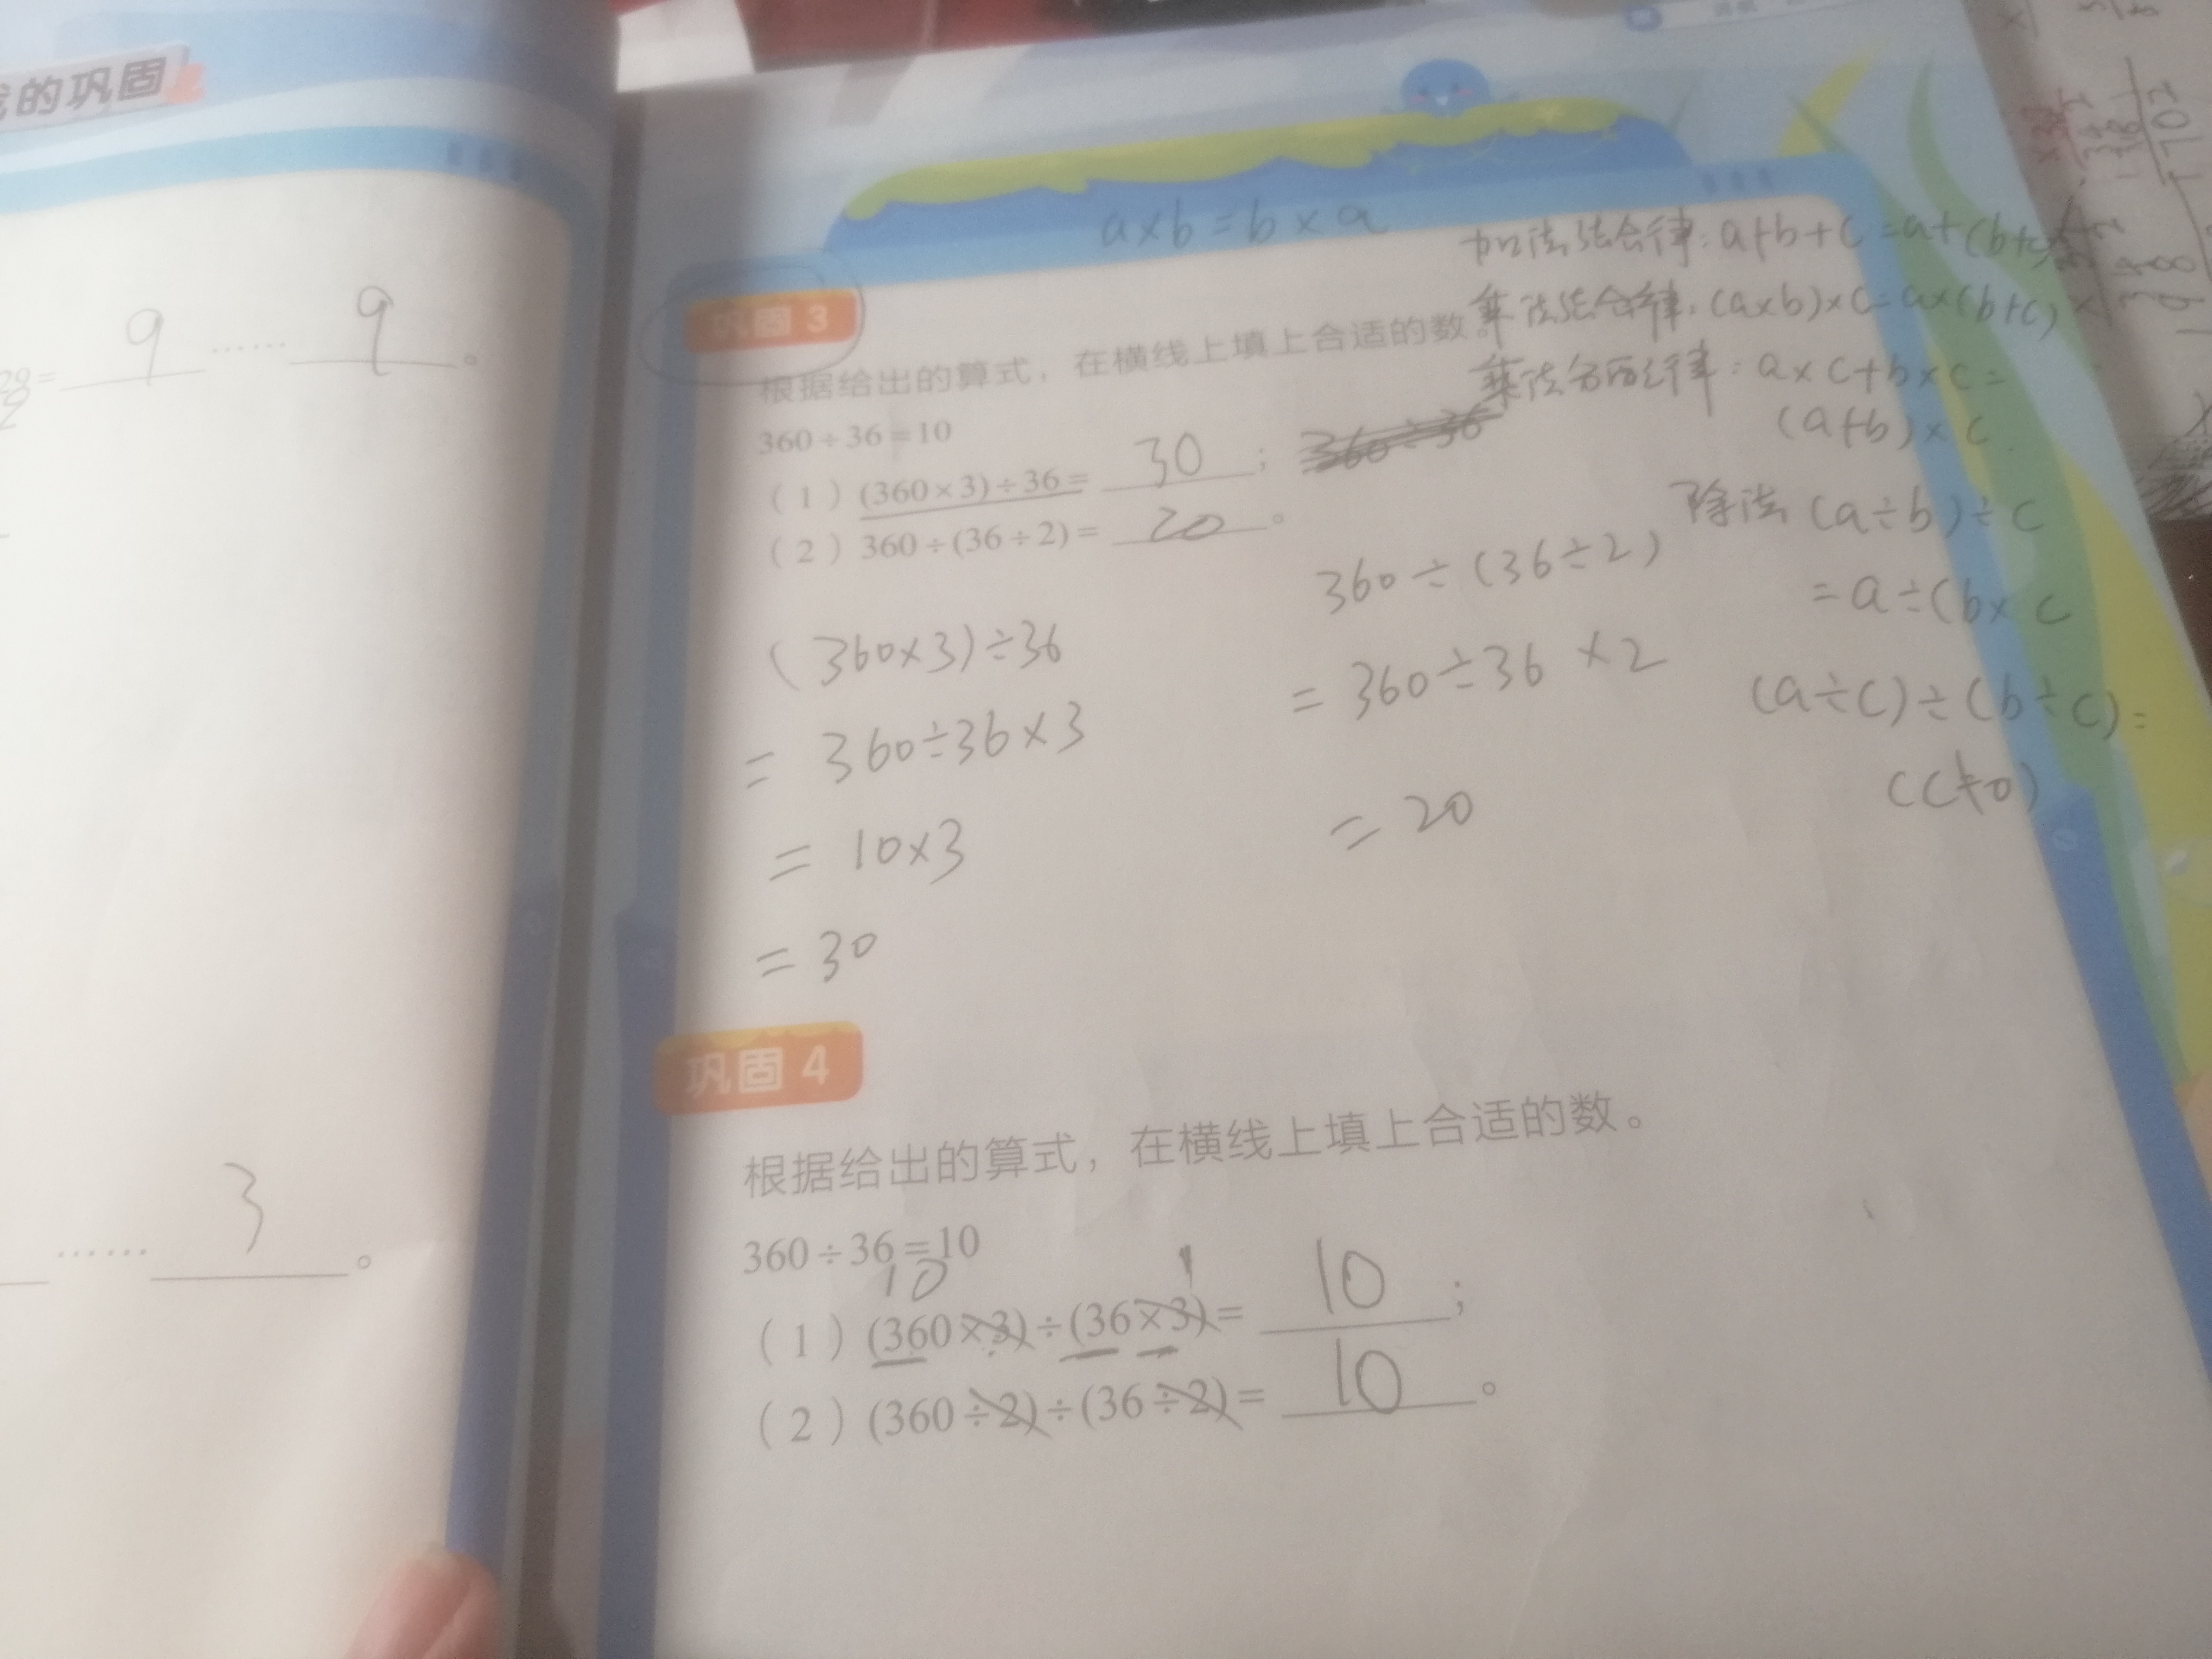 的巩固
9 …… 9 。
…… 3 。
a×b=b×a
加法结合律:a+b+c=a+(b+c)
乘法结合律:(a×b)×c=a×(b+c)
乘法分配律:a×c+b×c=
(a+b)×c
除法(a÷b)÷c
=a÷(b×c
(a÷c)÷(b÷c)=
(c≠0)
巩固 3
根据给出的算式，在横线上填上合适的数。
360÷36=10
（1）(360×3)÷36= 30 ； 360÷36
（2）360÷(36÷2)= 20 。
(360×3)÷36
=360÷36×3
=10×3
=30
360÷(36÷2)
=360÷36×2
=20
巩固 4
根据给出的算式，在横线上填上合适的数。
360÷36=10
10 1
（1）(360×3)÷(36×3)= 10 ；
（2）(360÷2)÷(36÷2)= 10 。